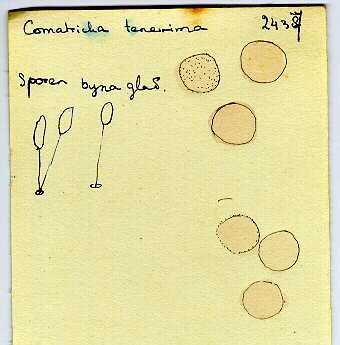 Comatricha tenerima 2438
Sporen byna glad.